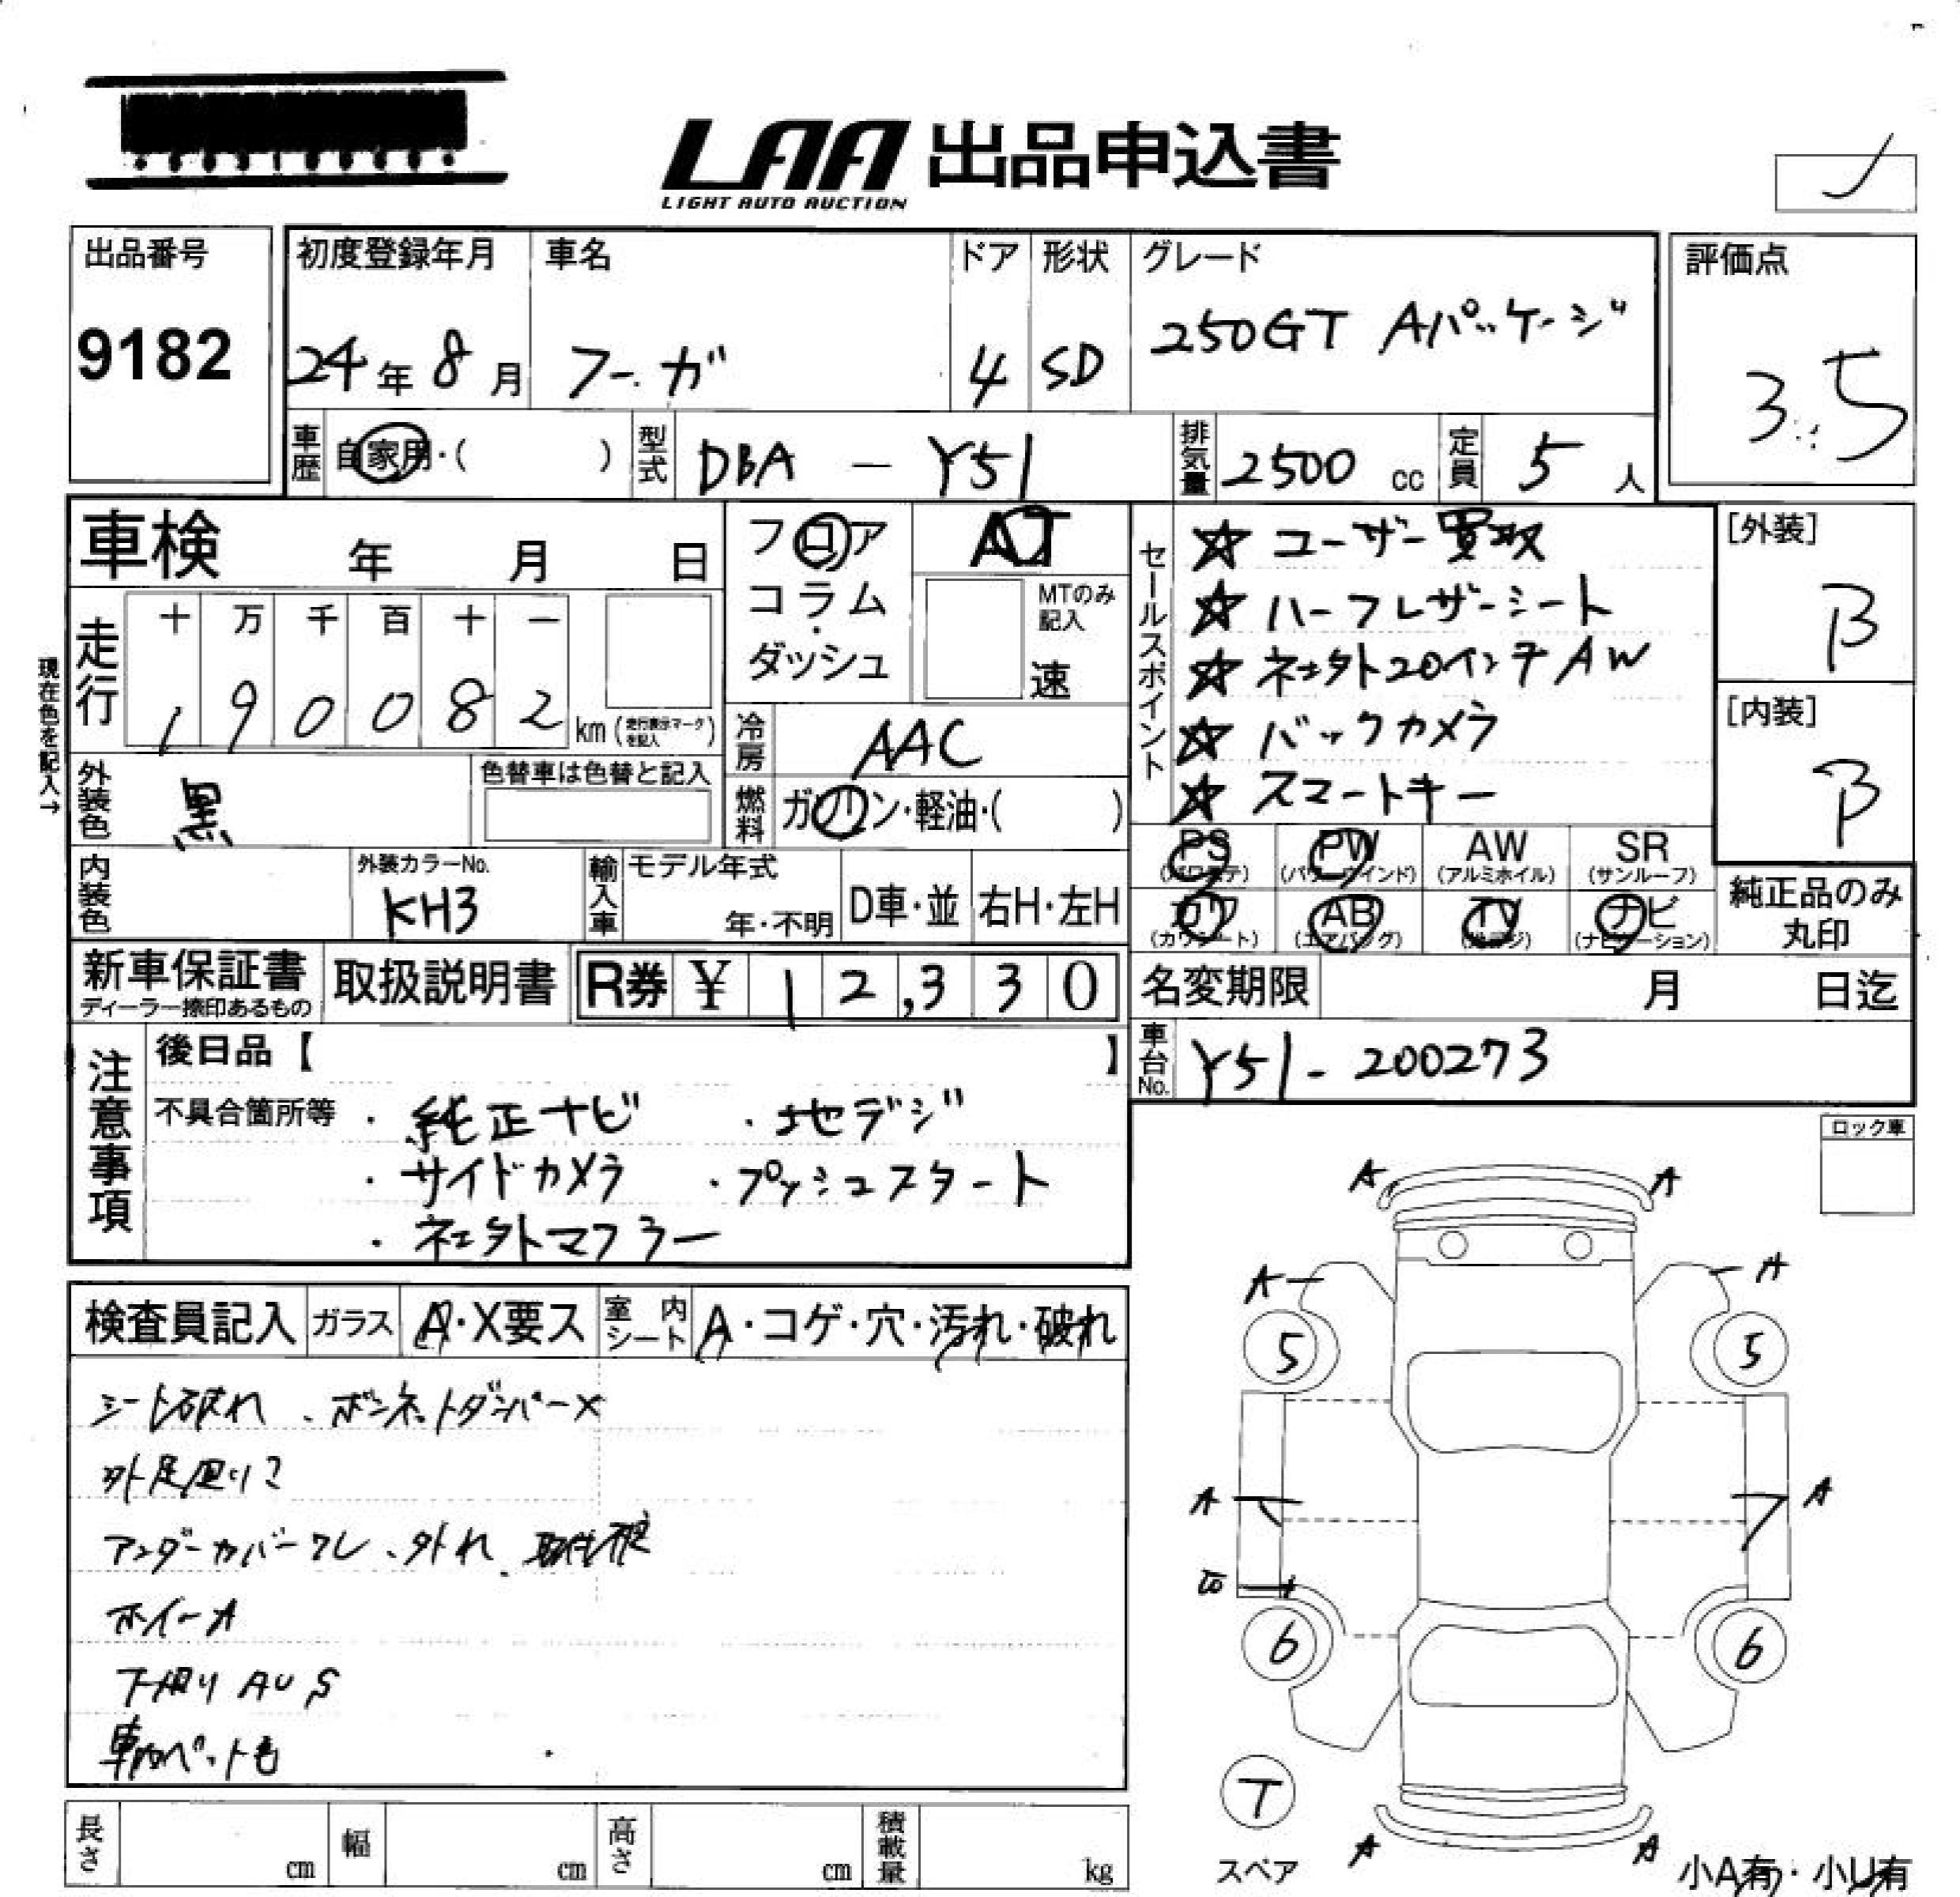 LAA 出品申込書
LIGHT AUTO AUCTION
出品番号
9182
初度登録年月
24年8月
車名
フーガ
ドア
4
形状
SD
グレード
250GT Aパッケージ
評価点
3.5
車歴
自家用・( )
型式
DBA - Y51
排気量
2500 cc
定員
5 人
車検 年 月 日
フロア
コラム・
ダッシュ
AT
MTのみ
記入
速
走行
十 万 千 百 十 一
1 9 0 0 8 2 km (走行表示マークを記入)
現在色を記入→
外装色
黒
色替車は色替と記入
冷房
AAC
燃料
ガソリン・軽油・( )
内装色
外装カラーNo.
KH3
輸入車
モデル年式
年・不明
D車・並
右H・左H
セールスポイント
☆ ユーザー買取
☆ ハーフレザーシート
☆ 社外20インチAW
☆ バックカメラ
☆ スマートキー
[外装]
B
[内装]
B
PS (パワステ)
PW (パワーウインド)
AW (アルミホイル)
SR (サンルーフ)
カワ (カワシート)
AB (エアバッグ)
TV (地デジ)
ナビ (ナビゲーション)
純正品のみ
丸印
新車保証書
ディーラー捺印あるもの
取扱説明書
R券 ¥ 12,330
名変期限 月 日迄
車台No.
Y51-200273
注意事項
後日品【 】
不具合箇所等 ・純正ナビ ・地デジ
・サイドカメラ ・プッシュスタート
・社外マフラー
ロック車
検査員記入
ガラス
A・X要ス
室内
シート
A・コゲ・穴・汚れ・破れ
シート破れ、ボンネットダンパーX
外足廻り
アンダーカバーワレ、外れ、
ホイールA
下廻りAUS
車内ペット毛
A A
A A
5 5
A A
6 6
T
スペア
A A
小A有・小U有
長さ cm
幅 cm
高さ cm
積載量 kg